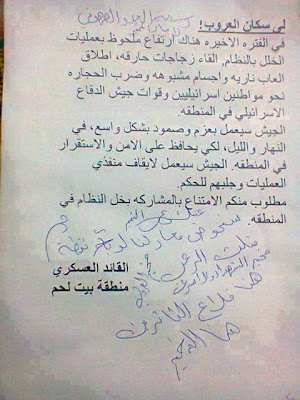 لى سكان العروب!
في الفتره الاخيره هناك ارتفاع ملحوظ بعمليات
الخلل بالنظام, القاء زجاجات حارقه, اطلاق
العاب ناريه واجسام مشبوهه وضرب الحجاره
نحو مواطنين اسرائيليين وقوات جيش الدفاع
الاسرائيلي في المنطقه.
الجيش سيعمل بعزم وصمود بشكل واسع, في
النهار والليل, لكي يحافظ على الامن والاستقرار
في المنطقه. الجيش سيعمل لايقاف منفذي
العمليات وجلبهم للحكم.
مطلوب منكم الامتناع بالمشاركه بخل النظام في
المنطقه.
سنخوض معاركنا
مخيم الشهداء
القائد العسكري
منطقة بيت لحم
هنا قلاع الثائرين
هنا